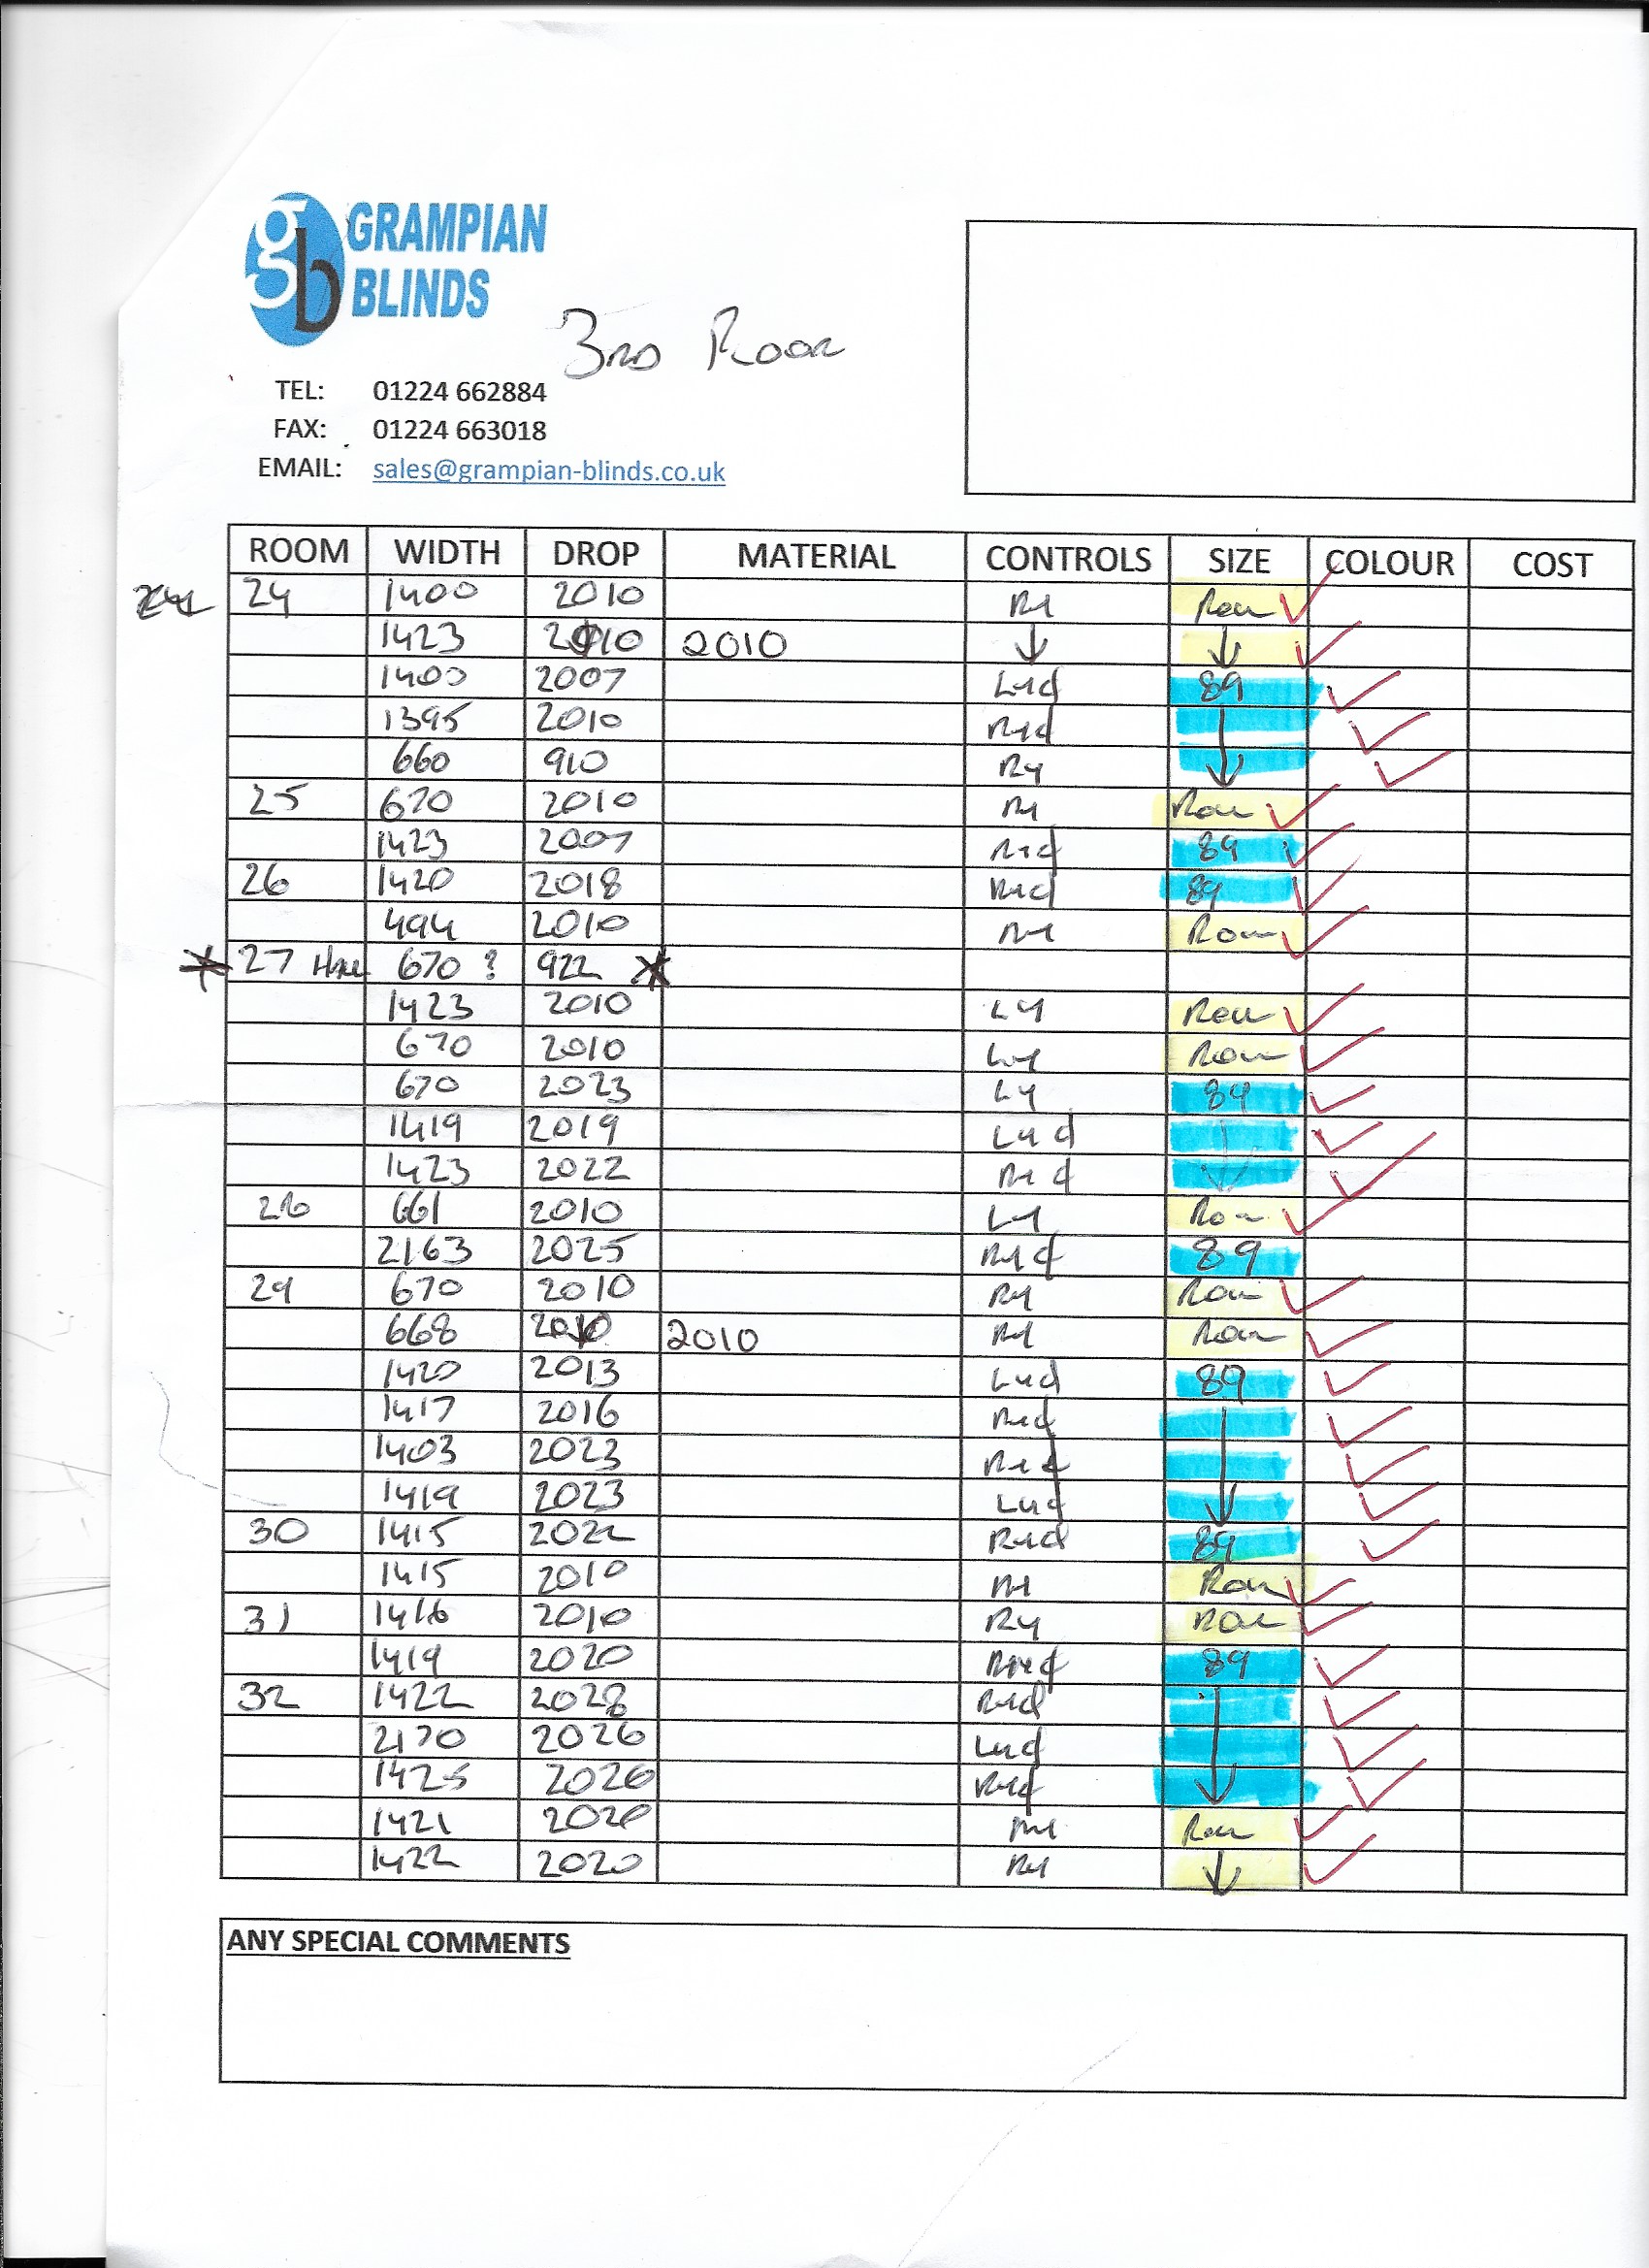 gb GRAMPIAN
BLINDS
3RD FLOOR
TEL: 01224 662884
FAX: 01224 663018
EMAIL: sales@grampian-blinds.co.uk
ROOM WIDTH DROP MATERIAL CONTROLS SIZE COLOUR COST
24 1400 2010 R4 Rou ✓
1423 2010 2010 ↓ ↓ ✓
1400 2007 L4d 89 ✓
1395 2010 R4d ✓
660 910 R4 ↓ ✓
25 670 2010 R4 Rou ✓
1423 2007 R4d 89 ✓
26 1420 2018 R4d 89 ✓
494 2010 R4 Rou ✓
* 27 670 ? 922 *
1423 2010 L4 Rou ✓
670 2010 L4 Rou ✓
670 2023 L4 89 ✓
1419 2019 L4d ✓
1423 2022 R4d ↓ ✓
28 661 2010 L4 Rou ✓
2163 2025 R4d 89
29 670 2010 R4 Rou ✓
668 2010 2010 R4 Rou ✓
1420 2013 L4d 89 ✓
1417 2016 R4d ✓
1403 2023 R4d ✓
1419 2023 L4d ↓ ✓
30 1415 2022 R4d 89 ✓
1415 2010 R4 Rou ✓
31 1416 2010 R4 Rou ✓
1419 2020 R4d 89 ✓
32 1422 2028 R4d ✓
2170 2026 L4d ✓
1425 2026 R4d ↓ ✓
1421 2020 R4 Rou ✓
1422 2020 R4 ↓ ✓
ANY SPECIAL COMMENTS